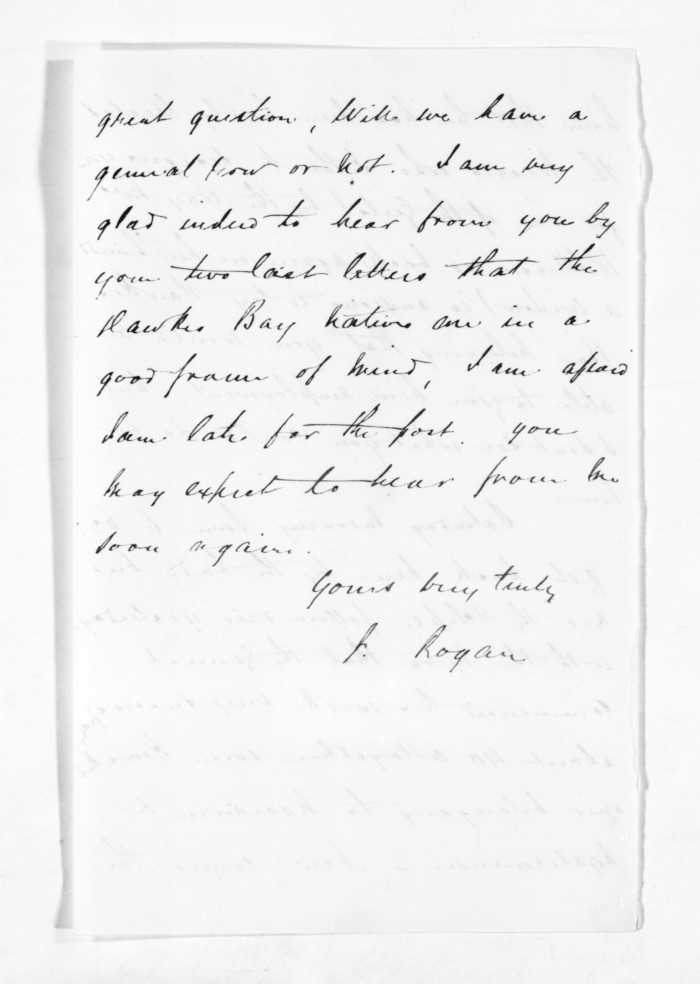 great question, Will we have a
general row or not. I am very
glad indeed to hear from you by
your two last letters that the
Hawkes Bay natives are in a
good frame of mind, I am afraid
I am late for the post. you
may expect to hear from me
soon again.
Yours very truly
J. Rogan